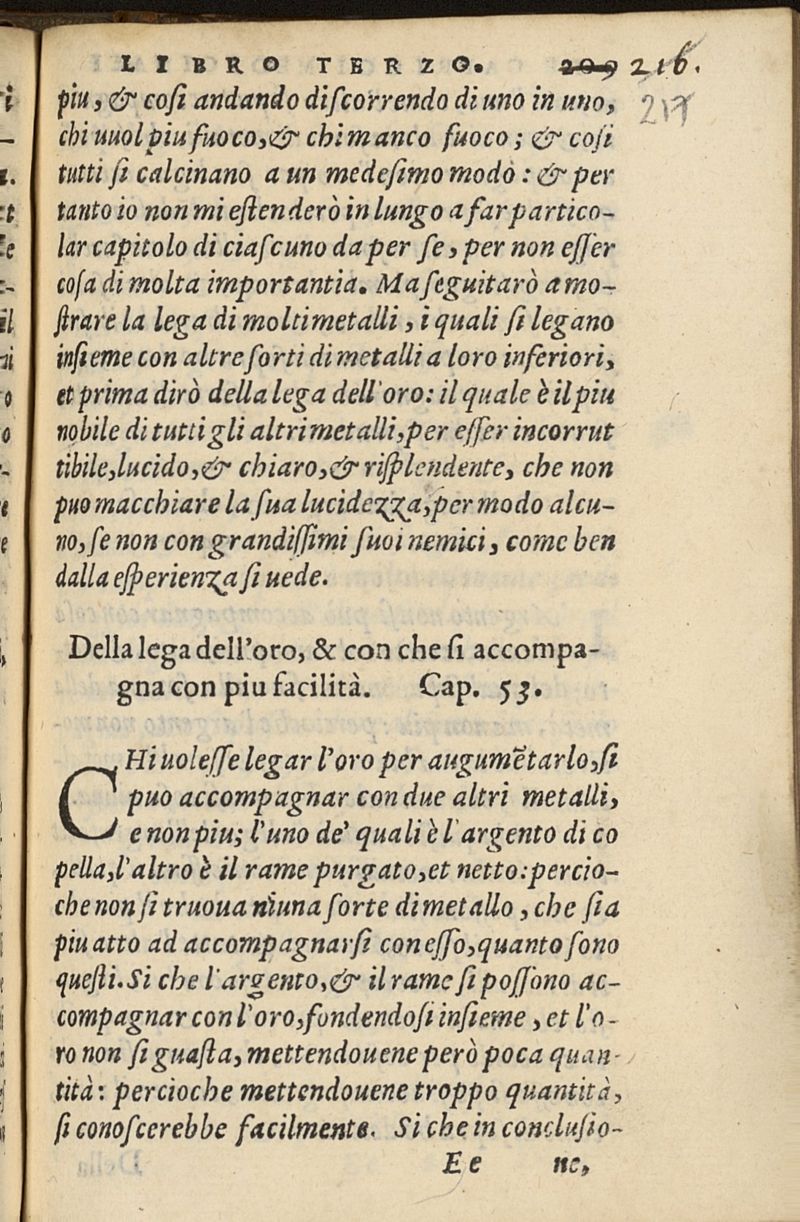 LIBRO TERZO. 209 216.
217
piu, & cosi andando discorrendo di uno in uno,
chi uuol piu fuoco, & chi manco fuoco; & cosi
tutti si calcinano a un medesimo modò: & per
tanto io non mi estenderò in lungo a far partico-
lar capitolo di ciascuno da per se, per non esser
cosa di molta importantia. Ma seguitarò a mo-
strare la lega di molti metalli, i quali si legano
insieme con altre sorti di metalli a loro inferiori,
et prima dirò della lega dell'oro: il quale è il piu
nobile di tutti gli altri metalli, per esser incorrut
tibile, lucido, & chiaro, & risplendente, che non
puo macchiare la sua lucidezza, per modo alcu-
no, se non con grandissimi suoi nemici, come ben
dalla esperienza si uede.
Della lega dell'oro, & con che si accompa-
gna con piu facilità. Cap. 53.
CHi uolesse legar l'oro per augumẽtarlo, si
puo accompagnar con due altri metalli,
e non piu; l'uno de' quali è l'argento di co
pella, l'altro è il rame purgato, et netto: percio-
che non si truoua niuna sorte di metallo, che sia
piu atto ad accompagnarsi con esso, quanto sono
questi. Si che l'argento, & il rame si possono ac-
compagnar con l'oro, fondendosi insieme, et l'o-
ro non si guasta, mettendouene però poca quan-
tità: percioche mettendouene troppo quantità,
si conoscerebbe facilmente. Si che in conclusio-
Ee ne,